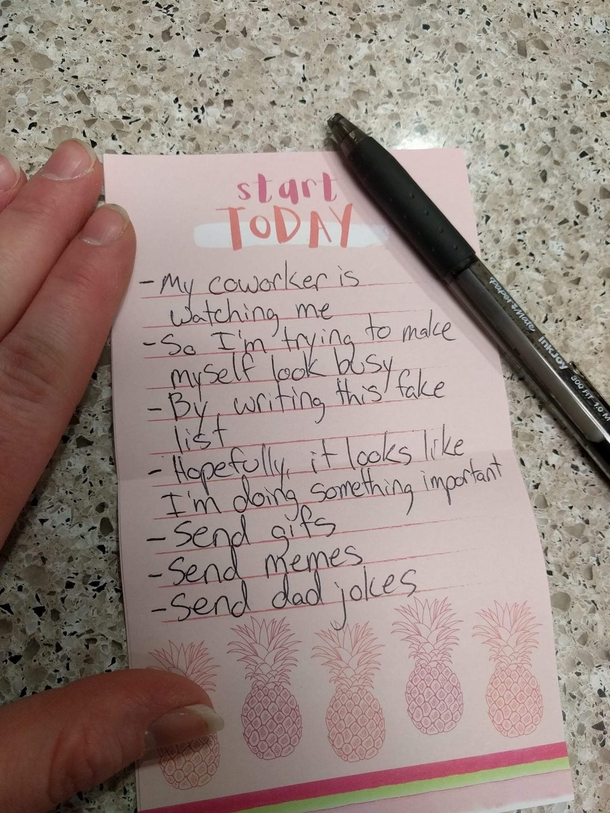 start
TODAY
- My coworker is
watching me
- So I'm trying to make
myself look busy
- By writing this fake
list
- Hopefully, it looks like
I'm doing something important
- Send gifs
- Send memes
- Send dad jokes
Paper Mate InkJoy 300 RT 1.0 M